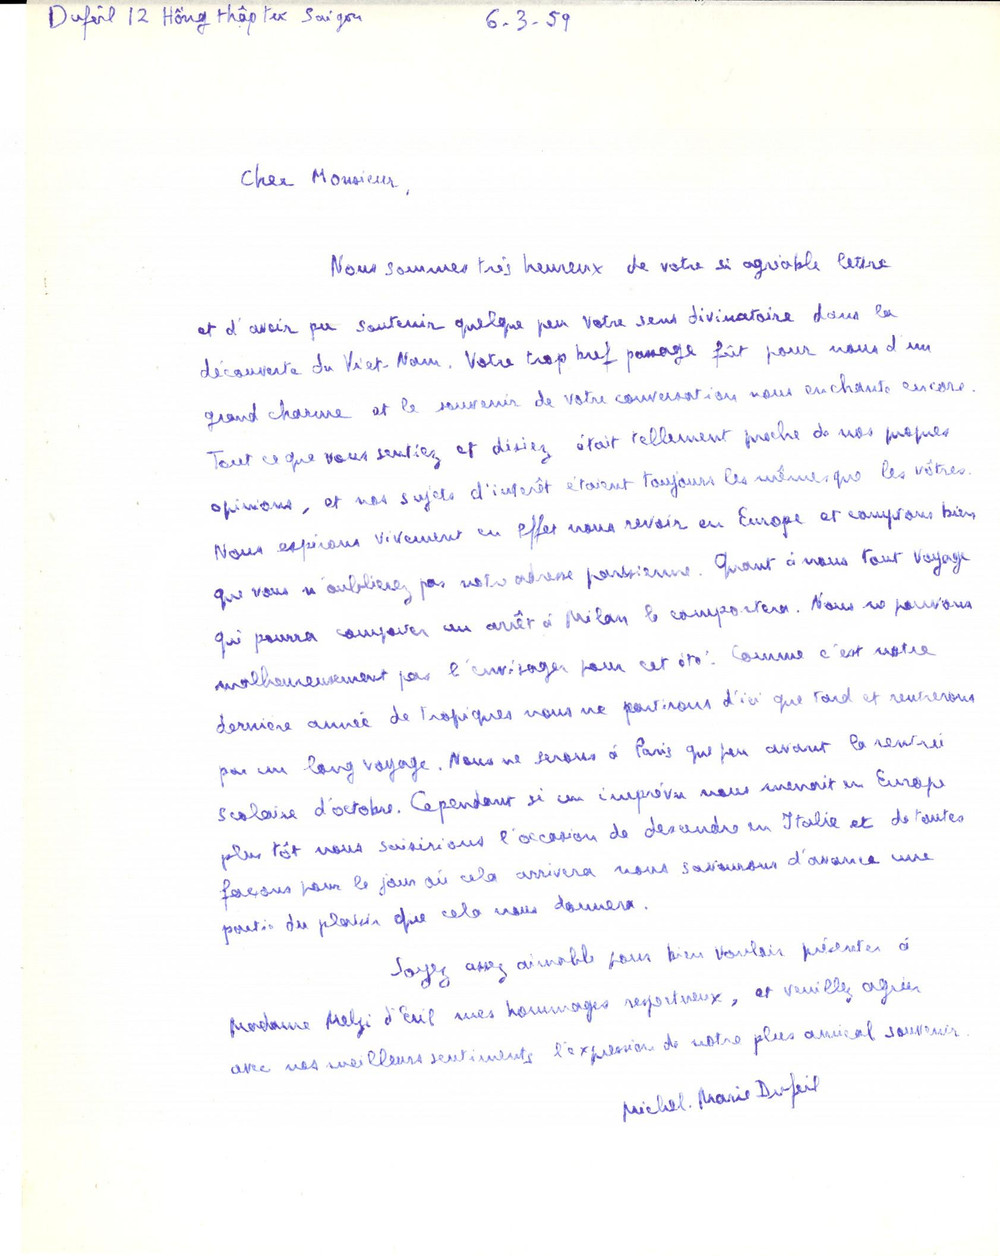 Dufeil 12 Hồng thập tư Saigon 6-3-59
Cher Monsieur,
Nous sommes très heureux de votre si agréable lettre
et d'avoir pu soutenir quelque peu votre sens divinatoire dans la
découverte du Viet-Nam. Votre trop bref passage fût pour nous d'un
grand charme et le souvenir de votre conversation nous enchante encore.
Tout ce que vous sentiez et disiez était tellement proche de nos propres
opinions, et nos sujets d'intérêt étaient toujours les mêmes que les vôtres.
Nous espérons vivement en effet nous revoir en Europe et comptons bien
que vous n'oublierez pas notre adresse parisienne. Quant à nous tout voyage
qui pourra comporter un arrêt à Milan le comportera. Nous ne pouvons
malheureusement pas l'envisager pour cet été. Comme c'est notre
dernière année de tropiques nous ne partirons d'ici que tard et rentrerons
par un long voyage. Nous ne serons à Paris que peu avant la rentrée
scolaire d'octobre. Cependant si un imprévu nous menait en Europe
plus tôt nous saisirions l'occasion de descendre en Italie et de toutes
façons pour le jour où cela arrivera nous savourons d'avance une
partie du plaisir que cela nous donnera.
Soyez assez aimable pour bien vouloir présenter à
Madame Melzi d'Eril mes hommages respectueux, et veuillez agréer
avec nos meilleurs sentiments l'expression de notre plus amical souvenir.
Michel-Marie Dufeil